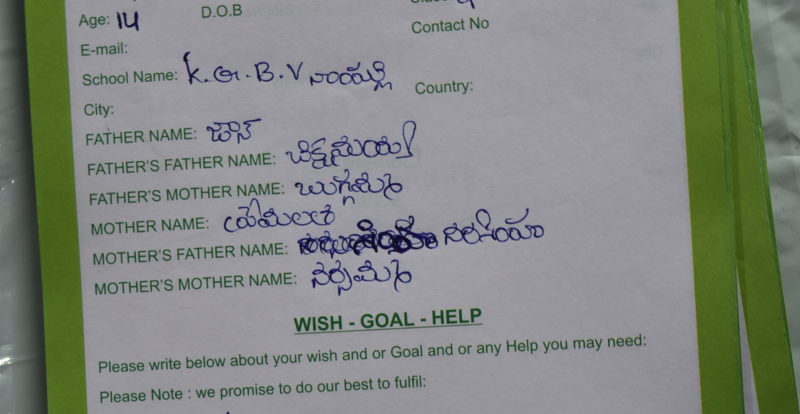 Age: 14 D.O.B
Contact No
E-mail:
School Name: K.G.B.V Country:
City:
FATHER NAME: జాన్
FATHER'S FATHER NAME:
FATHER'S MOTHER NAME: బుగ్గమ్మ
MOTHER NAME:
MOTHER'S FATHER NAME: నరసింహ
MOTHER'S MOTHER NAME: నర్సమ్మ
WISH - GOAL - HELP
Please write below about your wish and or Goal and or any Help you may need:
Please Note : we promise to do our best to fulfil: